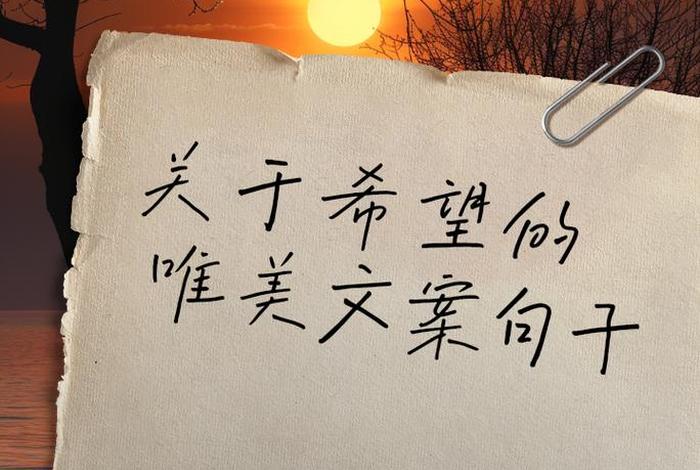 关于希望的
唯美文案句子